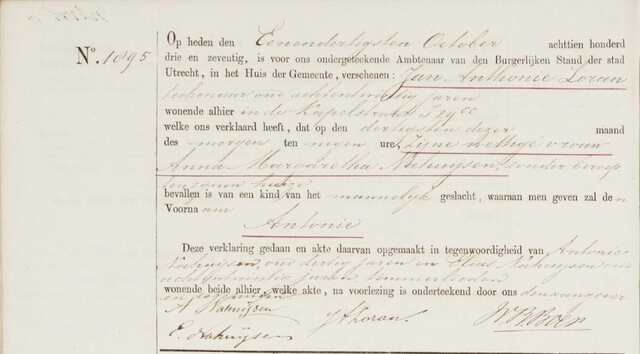 Nº. 1895
Op heden den Eenendertigsten October achttien honderd
drie en zeventig, is voor ons ondergeteekende Ambtenaar van den Burgerlijken Stand der stad
Utrecht, in het Huis der Gemeente, verschenen: Jan Anthonie Loran
oud achtentwintig jaren
wonende alhier in de Kapelstraat
welke ons verklaard heeft, dat op den dertigsten dezer maand
des morgen ten negen ure, Zijne wettige vrouw
Anna Margaretha Nahuijsen, zonder beroep
ten zijnen huize
bevallen is van een kind van het mannelijk geslacht, waaraan men geven zal de
Voorna am
Antonie
Deze verklaring gedaan en akte daarvan opgemaakt in tegenwoordigheid van Antonie
Nahuijsen, oud dertig jaren en Elias Nahuijsen oud
jaren timmerlieden
wonende beide alhier, welke akte, na voorlezing is onderteekend door ons
en
A Nahuijsen
JA Loran
E. Nahuijsen